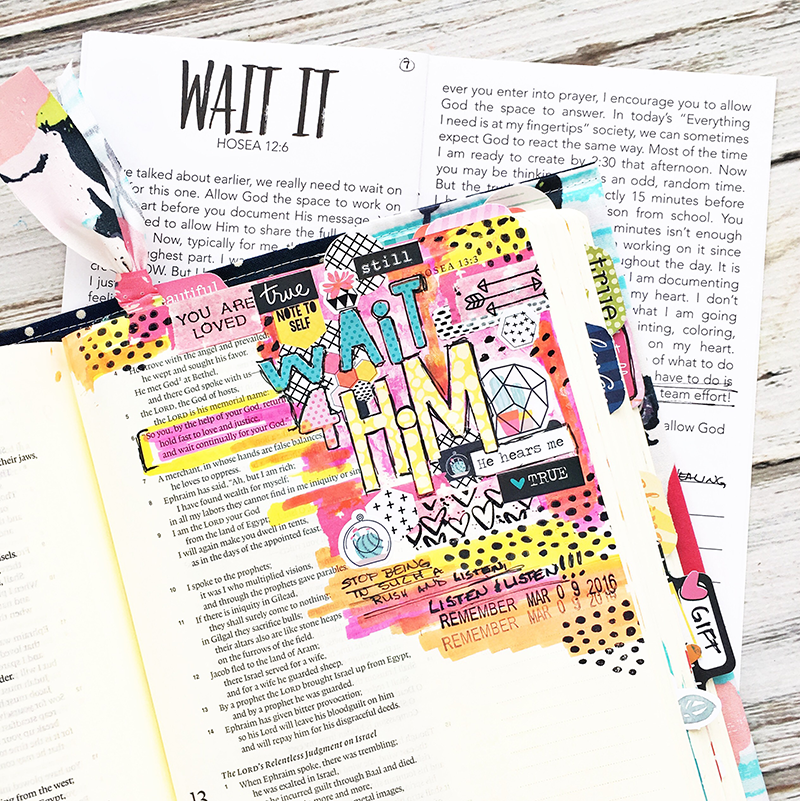 7
WAIT IT
HOSEA 12:6
talked about earlier, we really need to wait on
for this one. Allow God the space to work on
art before you document His message
to allow Him to share the full
Now, typically for me,
part. I
NOW. But I
I just
ever you enter into prayer, I encourage you to allow
God the space to answer. In today's "Everything
I need is at my fingertips" society, we can sometimes
expect God to react the same way. Most of the time
I am ready to create by 2:30 that afternoon. Now
you may be thinking an odd, random time.
But the 15 minutes before
son from school. You
minutes isn't enough
working on it since
the day. It is
I am documenting
my heart. I don't
what I am going
coloring,
on my heart.
of what to do
have to do is
team effort!
allow God
HEALING
beautiful
YOU ARE
LOVED
true
NOTE TO
SELF
still
HOSEA 13:3
WAIT
WAIT
4 HiM
He hears me
TRUE
true
GIFT
STOP BEING
IN SUCH A
RUSH AND LISTEN!
LISTEN & LISTEN!!!
REMEMBER MAR 09 2016
REMEMBER MAR 09 2016
their jaws.
4 He strove with the angel and prevailed;
he wept and sought his favor.
He met God at Bethel,
and there God spoke with us—
5 the LORD, the God of hosts,
the LORD is his memorial name:
6 "So you, by the help of your God, return,
hold fast to love and justice,
and wait continually for your God."
7 A merchant, in whose hands are false balances,
he loves to oppress.
8 Ephraim has said, "Ah, but I am rich;
I have found wealth for myself;
in all my labors they cannot find in me iniquity or sin
9 I am the LORD your God
from the land of Egypt;
I will again make you dwell in tents,
as in the days of the appointed feast.
10 I spoke to the prophets;
it was I who multiplied visions,
and through the prophets gave parables.
11 If there is iniquity in Gilead,
they shall surely come to nothing:
in Gilgal they sacrifice bulls;
their altars also are like stone heaps
on the furrows of the field.
12 Jacob fled to the land of Aram;
there Israel served for a wife,
and for a wife he guarded sheep.
13 By a prophet the LORD brought Israel up from Egypt,
and by a prophet he was guarded.
14 Ephraim has given bitter provocation;
so his Lord will leave his bloodguilt on him
and will repay him for his disgraceful deeds.
The LORD's Relentless Judgment on Israel
13 1 When Ephraim spoke, there was trembling;
he was exalted in Israel,
he incurred guilt through Baal and died.
more and more,
metal images,
from the west;